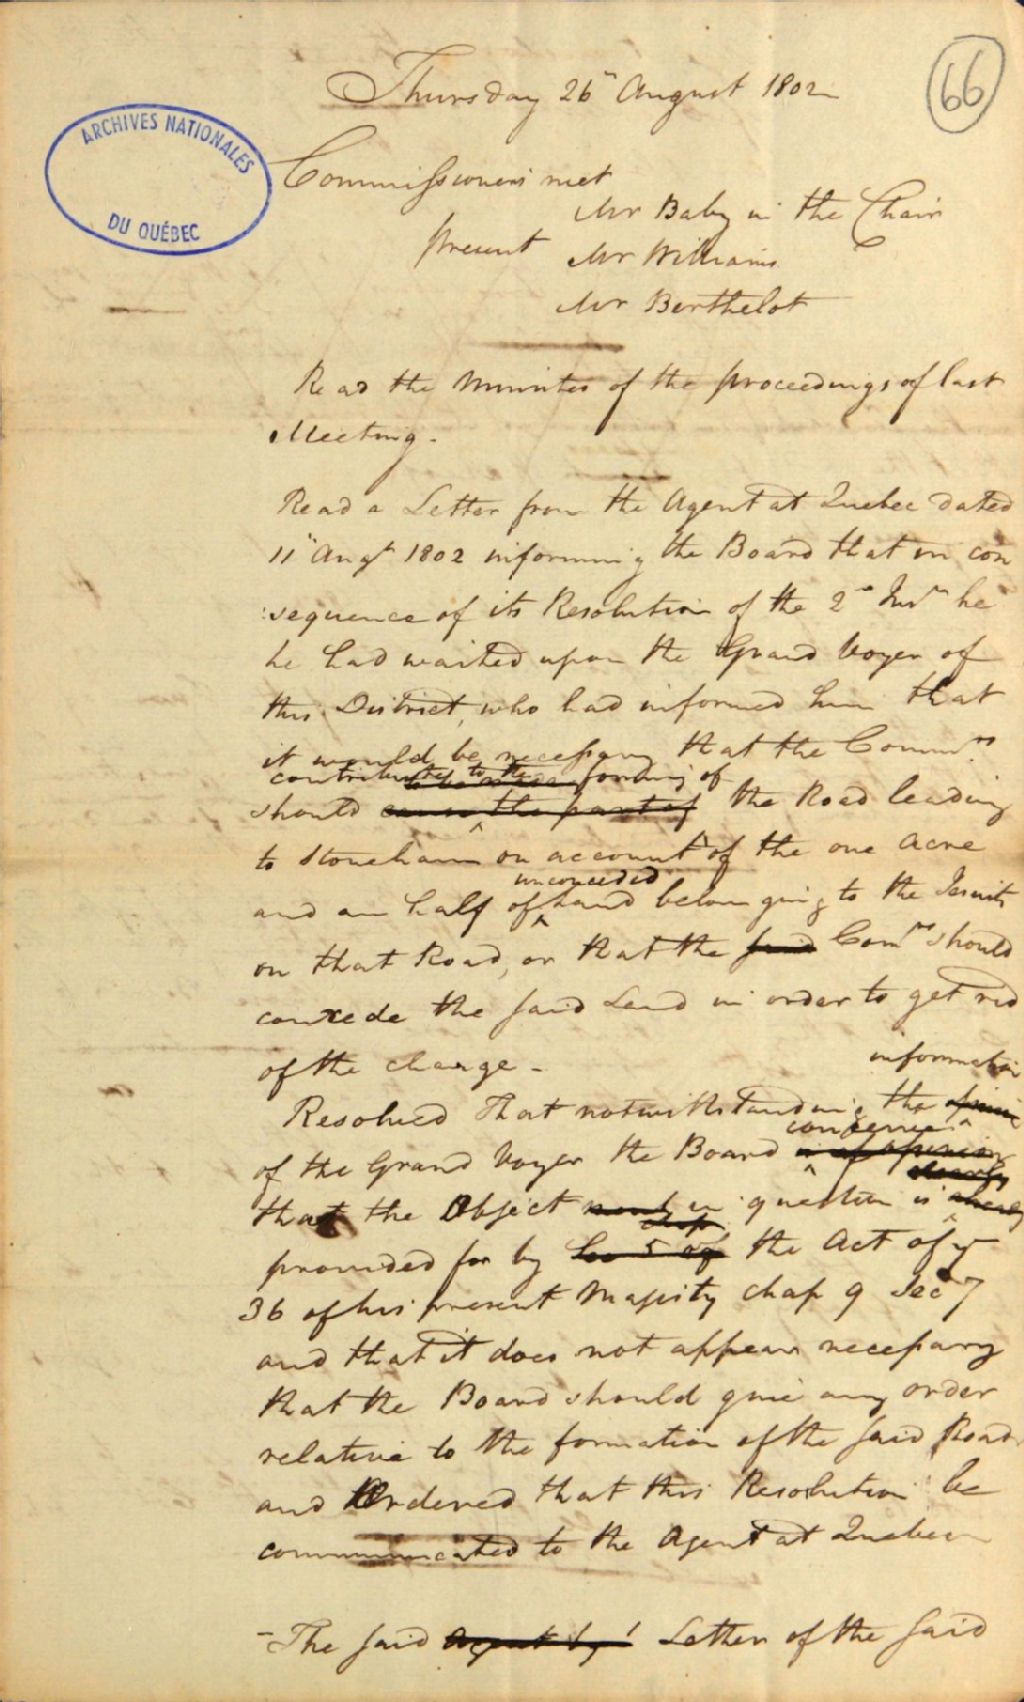 66
Thursday 26" August 1802
ARCHIVES NATIONALES
DU QUÉBEC
Commissioners met
Mr Baby in the Chair
present Mr Williams
Mr Berthelot
Read the Minutes of the proceedings of last
Meeting.
Read a Letter from the Agent at Quebec dated
11" Augt 1802 informing the Board that in con
sequence of its Resolution of the 2d Inst he
he had waited upon the Grand Voyer of
this District, who had informed him that
it would be necessary that the Commrs
contribute to the forming of
should cause the part of the Road leading
to Stoneham on account of the one Acre
unconceded
and an half of Land belonging to the Jesuits
on that Road, or that the said Comrs should
concede the said Land in order to get rid
of the charge -
information
Resolved That notwithstanding the opinion
conceive
of the Grand Voyer the Board is of opinion
clearly
that the Object now in question is already
chap
provided for by the Act of ye
36 of his present Majesty chap 9 Sec 7
and that it does not appear necessary
that the Board should give any order
relative to the formation of the said Road
and Ordered that this Resolution be
communicated to the Agent at Quebec
- The said Agent by Letter of the said